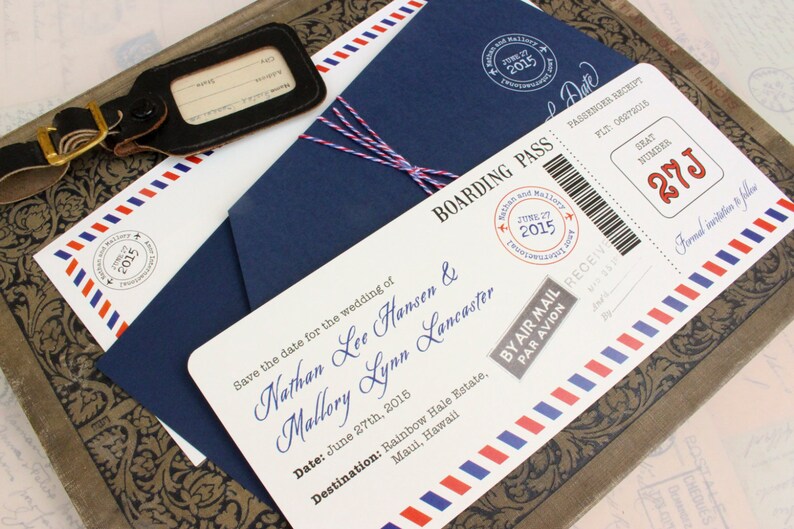 BOARDING PASS
Nathan and Mallory
JUNE 27
2015
Amor Internacional
Save the date for the wedding of
Nathan Lee Hansen &
Mallory Lynn Lancaster
Date: June 27th, 2015
Destination: Rainbow Hale Estate,
Maui, Hawaii
BY AIR MAIL
PAR AVION
RECEIVED
By
PASSENGER RECEIPT
FLT: 06272015
SEAT
NUMBER
27J
Formal invitation to follow
Nathan and Mallory
JUNE 27
2015
Amor Internacional
Date
Nathan and Mallory
JUNE 27
2015
Amor Internacional
Name
Address
City
State